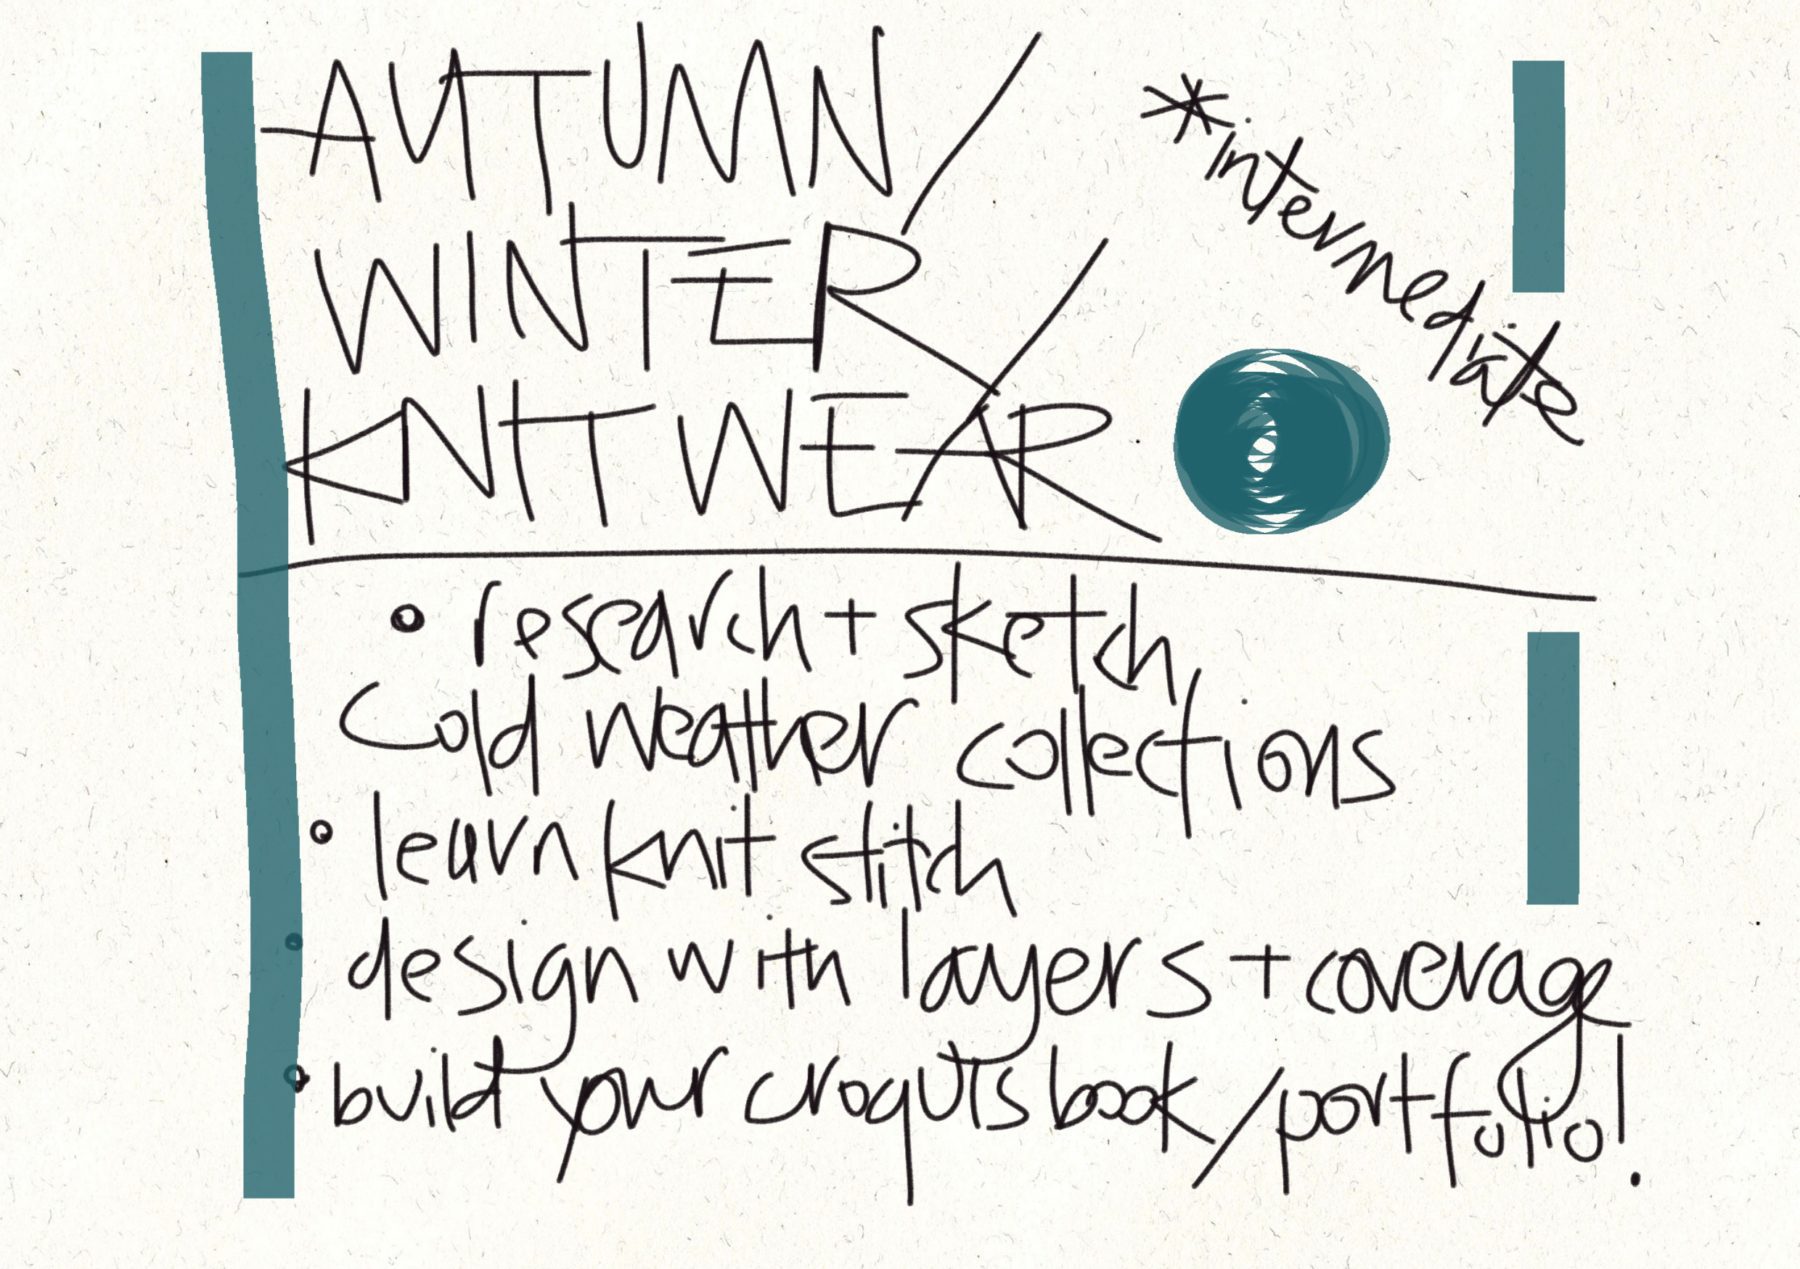 AUTUMN/
WINTER/
KNITWEAR
*intermediate
• research + sketch
cold weather collections
• learn knit stitch
• design with layers + coverage
• build your croquis book/portfolio!